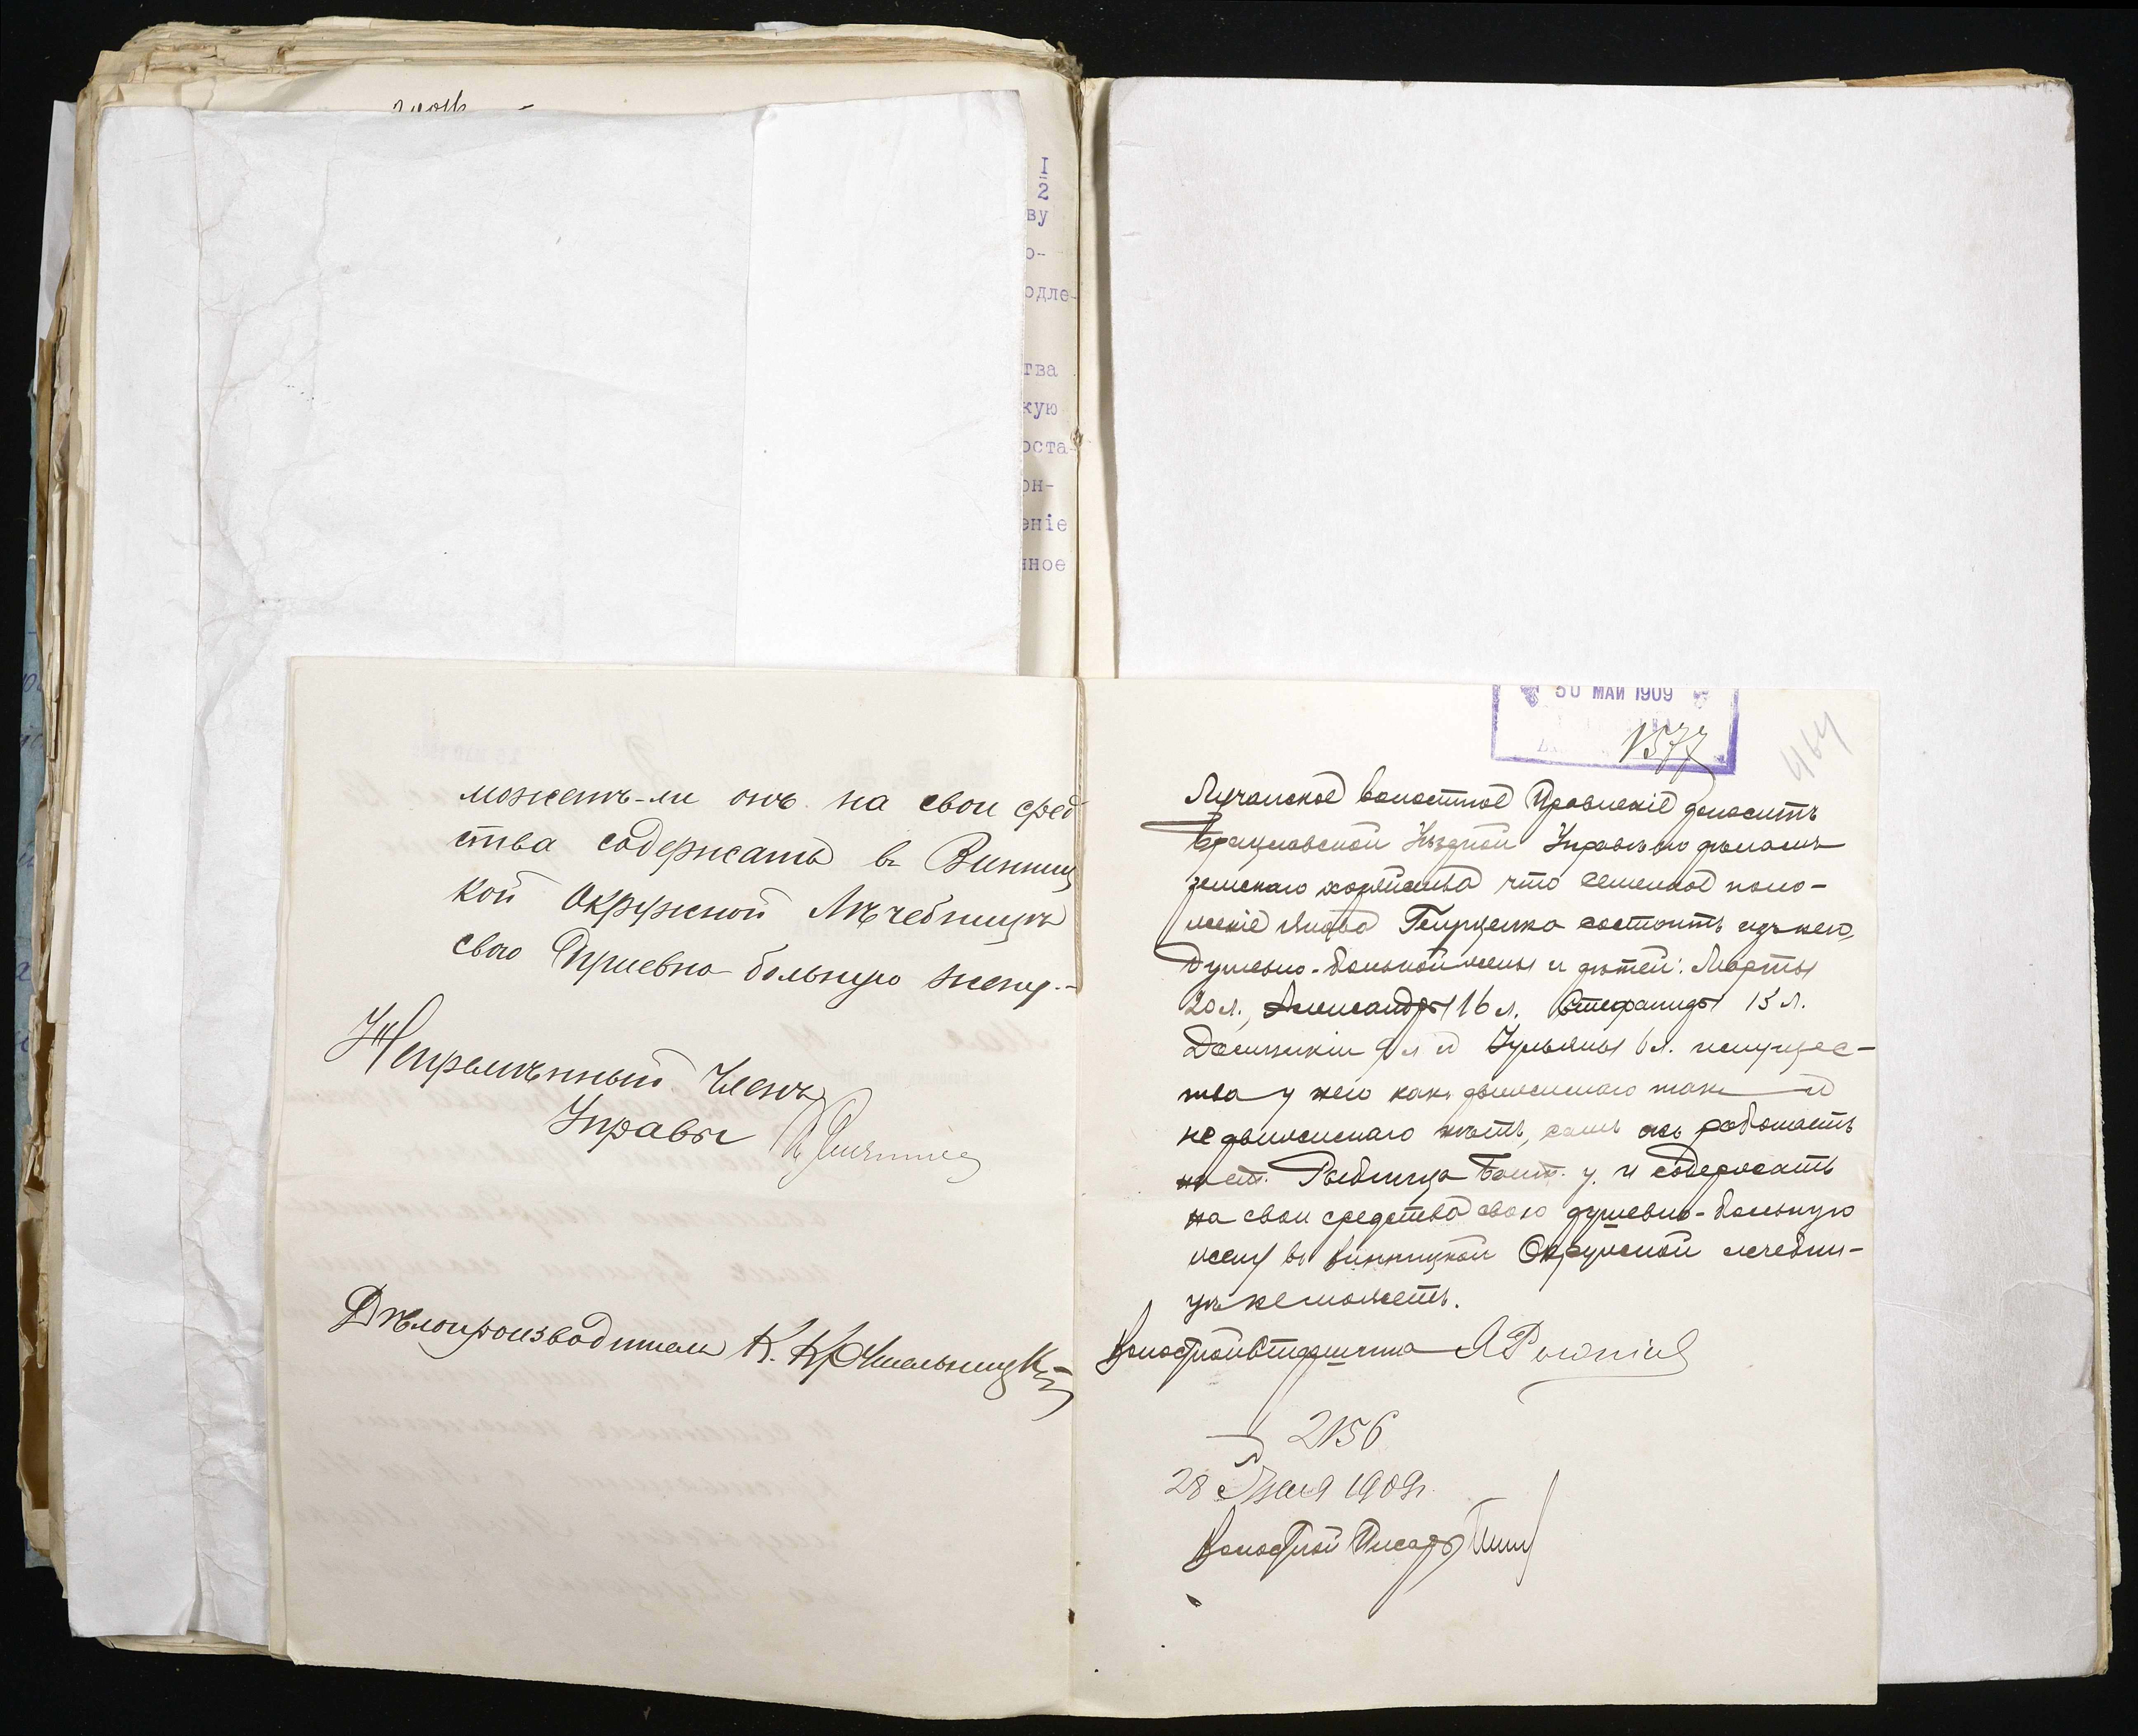 I
2
ву
о-
одле-
тва
кую
оста-
он-
еніе
нное
можетъ-ли онъ на свои сред
ства содержать въ Винниц
кой Окружной Лѣчебницѣ
свою Душевно-больную жену.-
Непремѣнный Членъ
Управы
Дѣлопроизводитель К. Хмельницкій
30 МАЙ 1909
1577
464
Лучанское волостное Правленіе доноситъ
Брацлавской Уѣздной Управѣ по дѣламъ
земскаго хозяйства что семейное поло-
женіе Якова Гонцренко состоитъ изъ него,
душевно-больной жены и дѣтей: Марты
20 л., Александры 16 л. Стефаниды 13 л.
Домникіи 9 л и Ульяны 6 л. имущес-
тва у него какъ движимаго такъ и
недвижимаго нѣтъ, самъ онъ работаетъ
на ст. Рыбница Балт. у. и содержать
на свои средства свою душевно-больную
жену въ Винницкой Окружной лечебни-
цѣ не можетъ.
Волостной Старшина
2156
28 Мая 1909 г.
Волостной Писарь